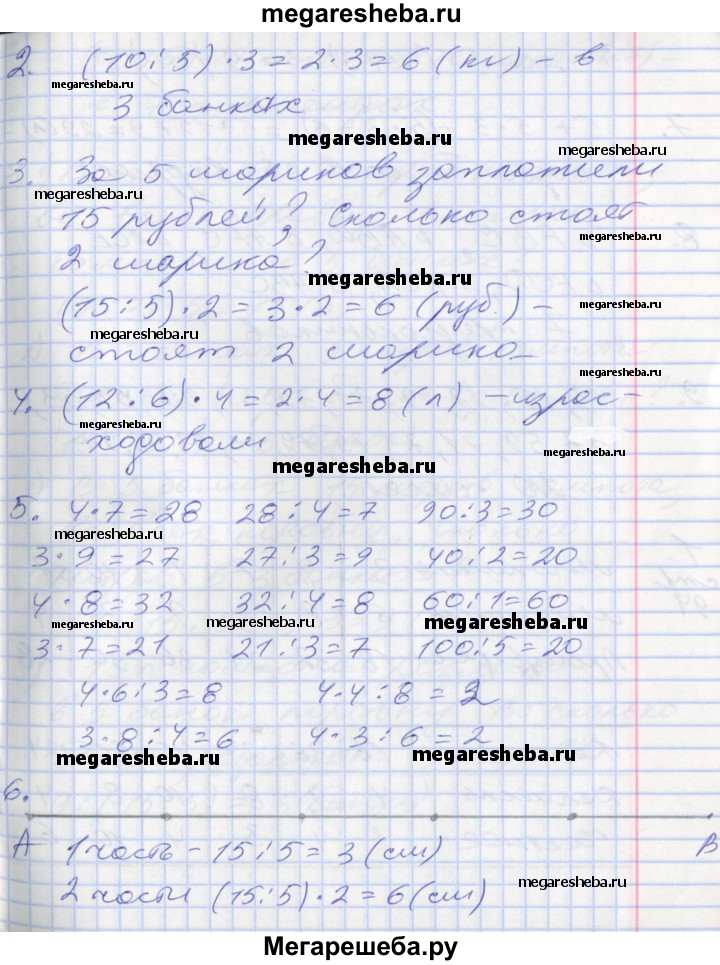 megaresheba.ru
2. (10:5)·3=2·3=6 (кг) - в
megaresheba.ru megaresheba.ru
3 банках
megaresheba.ru
3. За 5 шариков заплатили
megaresheba.ru
15 рублей? Сколько стоят
megaresheba.ru
2 шарика?
megaresheba.ru
(15:5)·2=3·2=6 (руб.) -
megaresheba.ru
стоят 2 шарика
megaresheba.ru
4. (12:6)·4=2·4=8 (л) - израс-
ходовали
megaresheba.ru
megaresheba.ru
5. 4·7=28 28:4=7 90:3=30
megaresheba.ru
3·9=27 27:3=9 40:2=20
4·8=32 32:4=8 60:1=60
megaresheba.ru megaresheba.ru megaresheba.ru
3·7=21 21:3=7 100:5=20
4·6:3=8 4·4:8=2
3·8:4=6 4·3:6=2
megaresheba.ru megaresheba.ru
6.
A B
1 часть - 15:5=3 (см)
2 части (15:5)·2=6 (см)
megaresheba.ru
Мегарешеба.ру